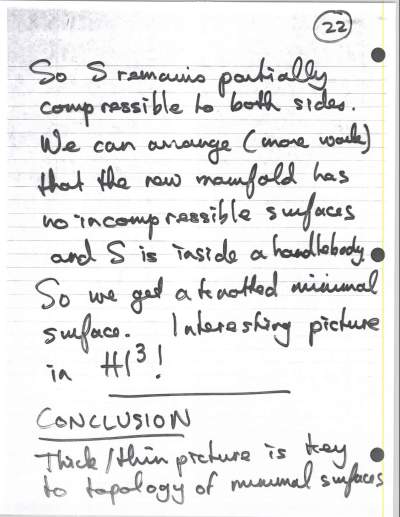 22
So S remains partially
compressible to both sides.
We can arrange (more work)
that the new manifold has
no incompressible surfaces
and S is inside a handlebody
So we get a knotted minimal
surface. Interesting picture
in H^3!
CONCLUSION
Thick/thin picture is key
to topology of minimal surfaces